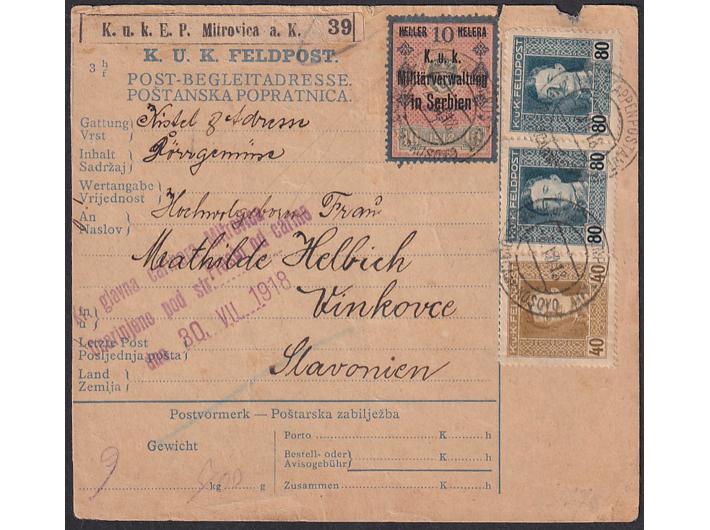 K. u. k. E. P. Mitrovica a. K. 39
K. U. K. FELDPOST.
3 h/f
POST-BEGLEITADRESSE.
POŠTANSKA POPRATNICA.
Gattung
Vrst
Kistel Adresse
Inhalt
Sadržaj
Dörrgemüse
Wertangabe
Vrijednost
An
Naslov
Hochwolgeboren Frau
Mathilde Helbich
In
u
Vinkovce
Letzte Post
Posljednja pošta
Land
Zemlja
Slavonien
Kr. glavna carinara Mitrovica
pod carine
dne 30. VII. 1918
Postvormerk — Poštarska zabilježba
Gewicht
kg g
Porto K h
Bestell- oder
Avisogebühr K h
Zusammen K h
HELLER 10 HELERA
K. u. k.
Militärverwaltung
in Serbien
K.U.K. FELDPOST
80 80
K.U.K. FELDPOST
80
K.U.K. FELDPOST
40 40